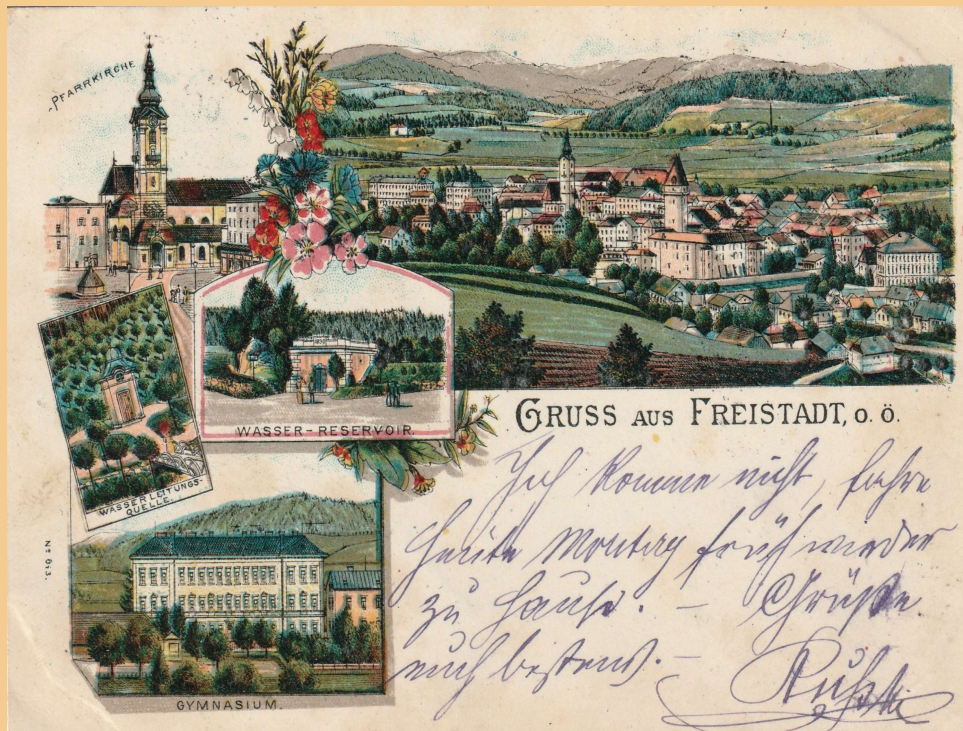 PFARRKIRCHE
WASSER-RESERVOIR.
WASSERLEITUNGS-
QUELLE.
GRUSS AUS FREISTADT, O. Ö.
Ich komme nicht, fahre
heute Montag früh wieder
zu Hause. – Grüße
euch bestens. –
No 613.
GYMNASIUM.